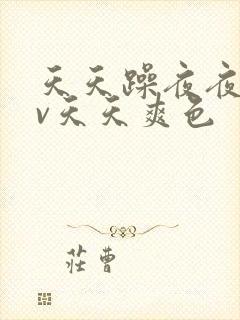 天天躁夜夜
v天天爽色
莊曹